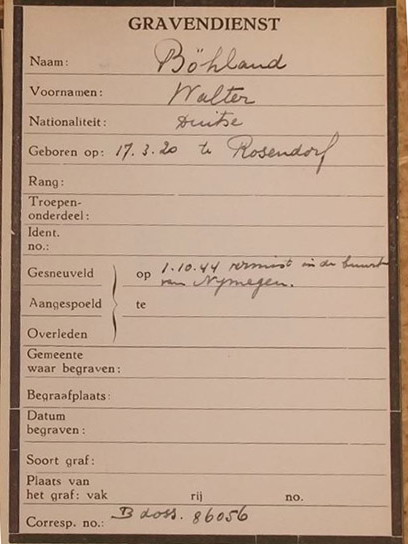 GRAVENDIENST
Naam: Böhland
Voornamen: Walter
Nationaliteit: Duitse
Geboren op: 17.3.20 te Rosendorf
Rang:
Troepen-
onderdeel:
Ident.
no.:
Gesneuveld op 1.10.44 vermist in de buurt
van Nymegen.
Aangespoeld te
Overleden
Gemeente
waar begraven:
Begraafplaats:
Datum
begraven:
Soort graf:
Plaats van
het graf: vak rij no.
Corresp. no.: B doss. 86056